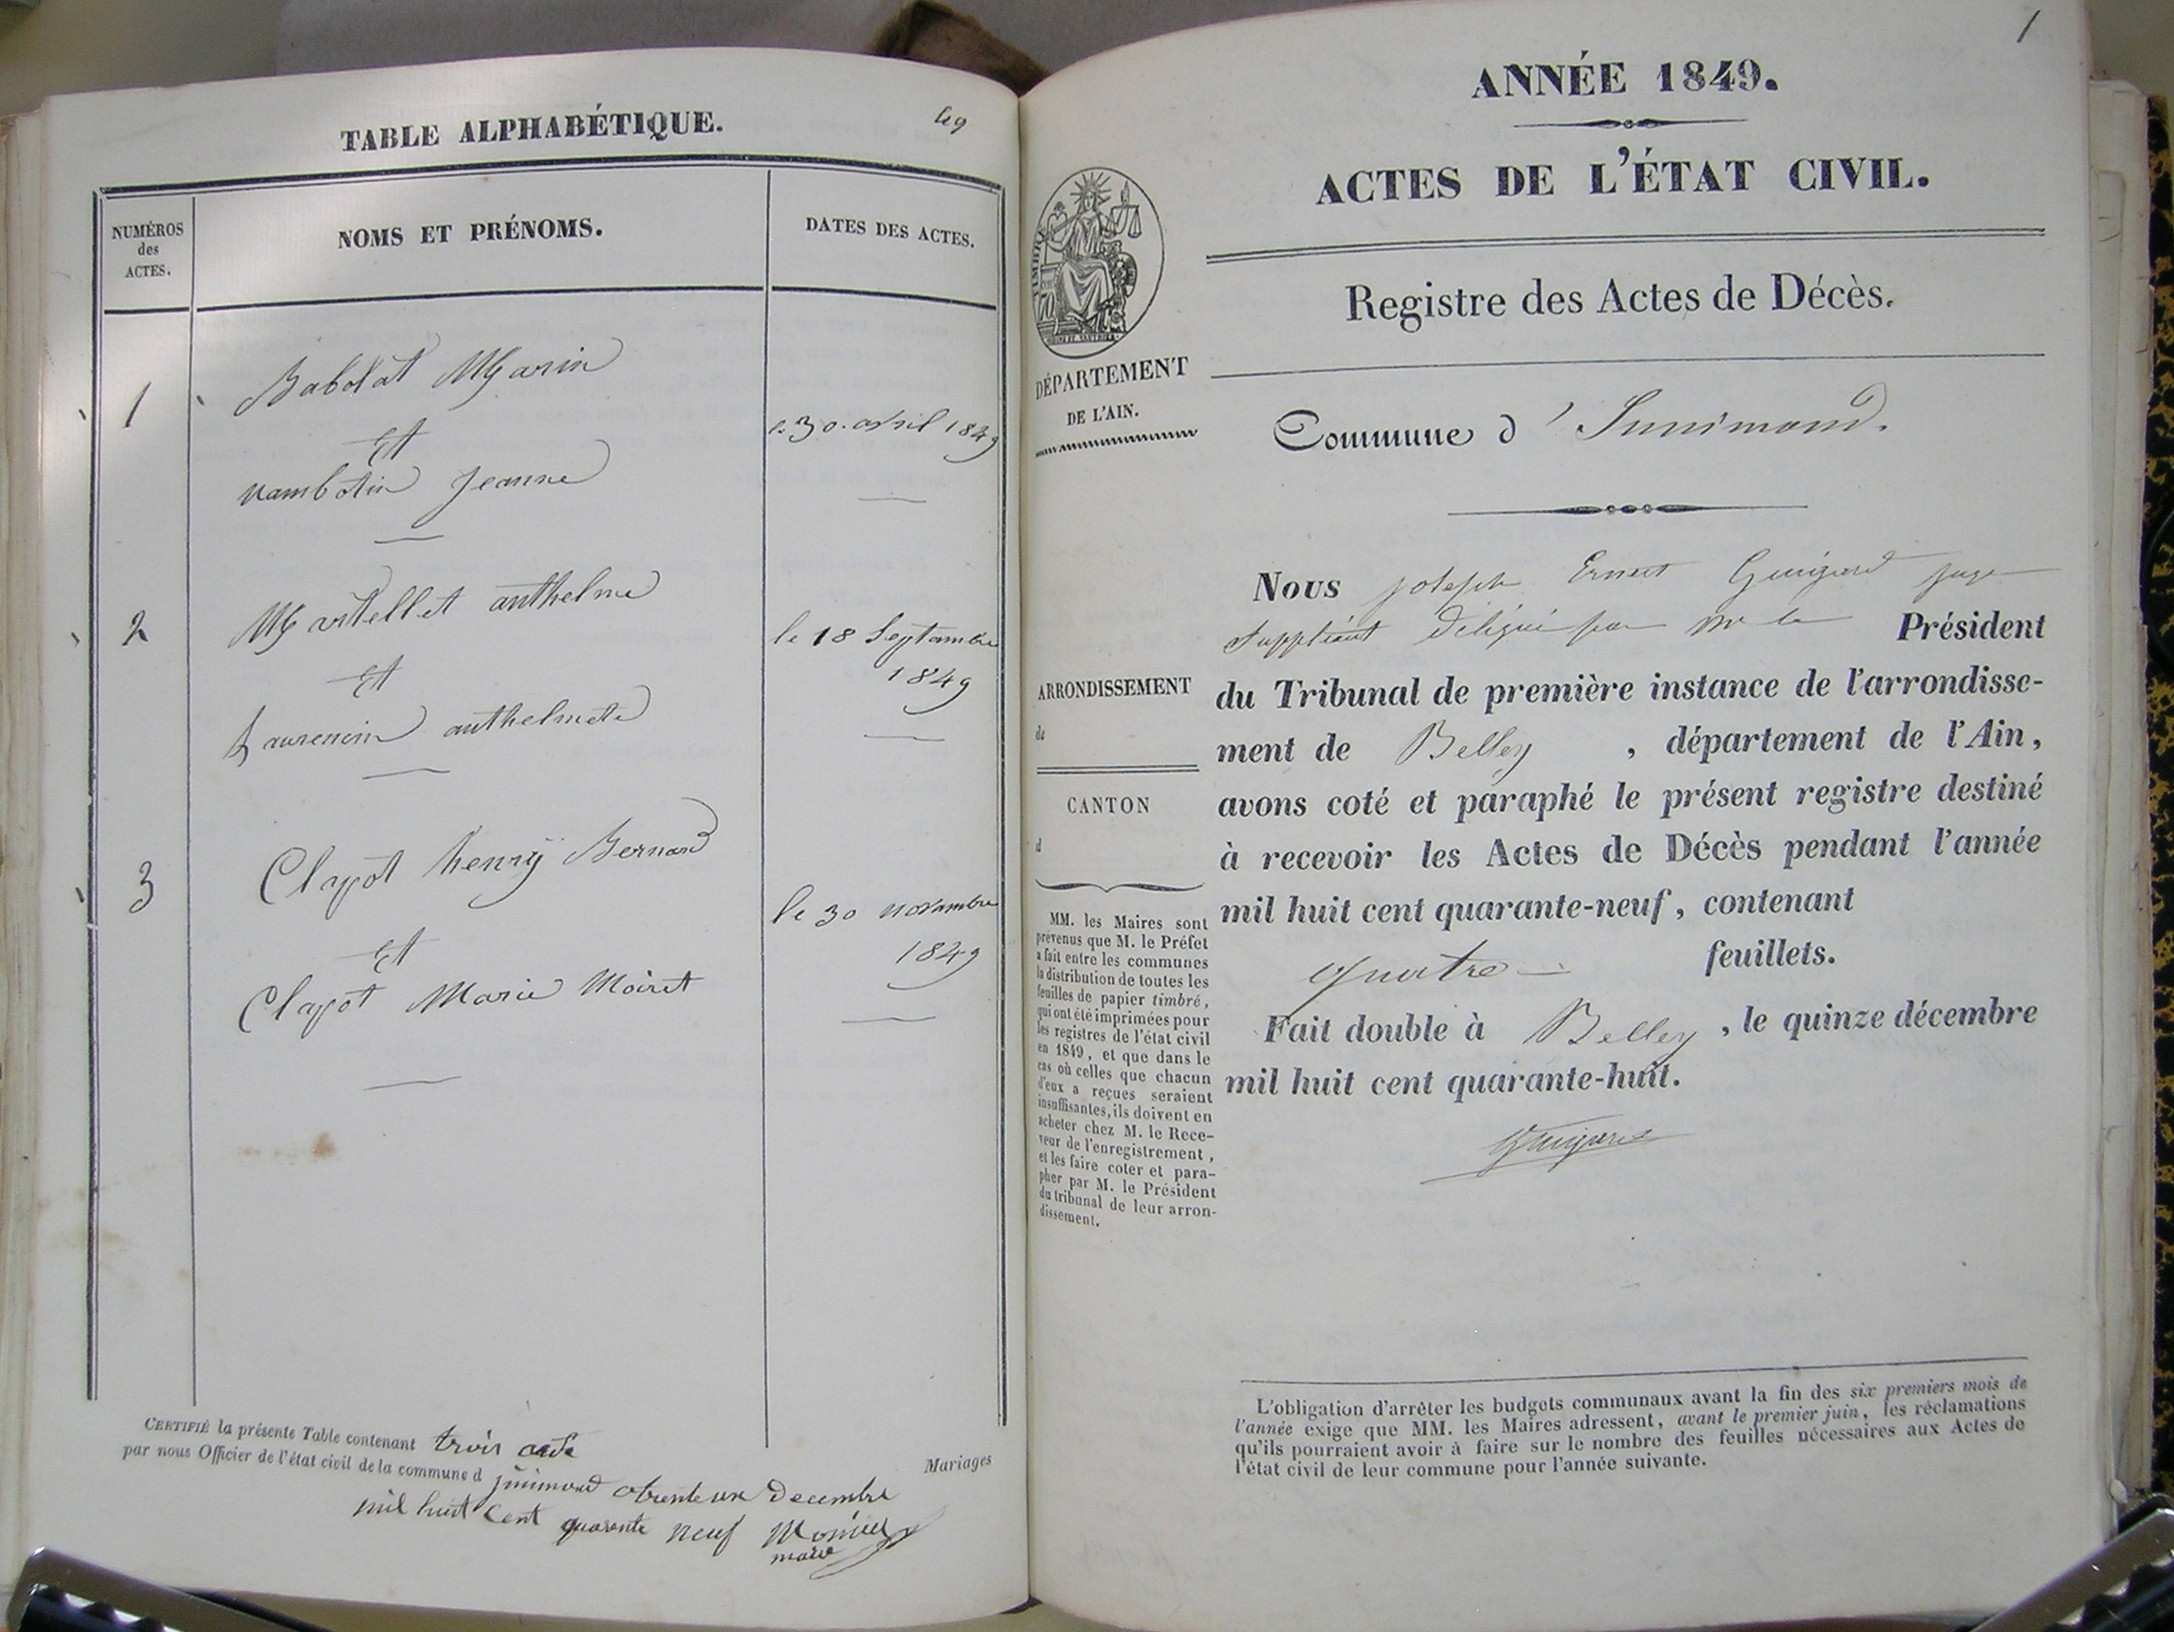 TABLE ALPHABÉTIQUE.
49
NUMÉROS
des
ACTES.
NOMS ET PRÉNOMS.
DATES DES ACTES.
1
Babolat Marin
Et
vambotin Jeanne
le 30 avril 1849
2
Martellet anthelme
Et
Laurencin anthelmete
le 18 Septambre
1849
3
Clapot henrÿ Bernard
Et
Clapot Marie Moiret
le 30 novambre
1849
CERTIFIÉ la présente Table contenant trois acte
par nous Officier de l'état civil de la commune d jnnimond
trente un Decembre
mil huit Cent quarente neuf
maire
Mariages
1
ANNÉE 1849.
ACTES DE L'ÉTAT CIVIL.
Registre des Actes de Décès.
TIMBRE
DÉPARTEMENT
DE L'AIN.
Commune d' Innimond.
Nous joseph Ernest Guigard juge
suppléant délégué par Mr le Président
du Tribunal de première instance de l'arrondisse-
ment de Belley , département de l'Ain,
avons coté et paraphé le présent registre destiné
à recevoir les Actes de Décès pendant l'année
mil huit cent quarante-neuf, contenant
quatre feuillets.
Fait double à Belley , le quinze décembre
mil huit cent quarante-huit.
Guigard
ARRONDISSEMENT
de
CANTON
d
MM. les Maires sont
prévenus que M. le Préfet
a fait entre les communes
la distribution de toutes les
feuilles de papier timbré,
qui ont été imprimées pour
les registres de l'état civil
en 1849, et que dans le
cas où celles que chacun
d'eux a reçues seraient
insuffisantes, ils doivent en
acheter chez M. le Rece-
veur de l'enregistrement,
et les faire coter et para-
pher par M. le Président
du tribunal de leur arron-
dissement.
L'obligation d'arrêter les budgets communaux avant la fin des six premiers mois de
l'année exige que MM. les Maires adressent, avant le premier juin, les réclamations
qu'ils pourraient avoir à faire sur le nombre des feuilles nécessaires aux Actes de
l'état civil de leur commune pour l'année suivante.